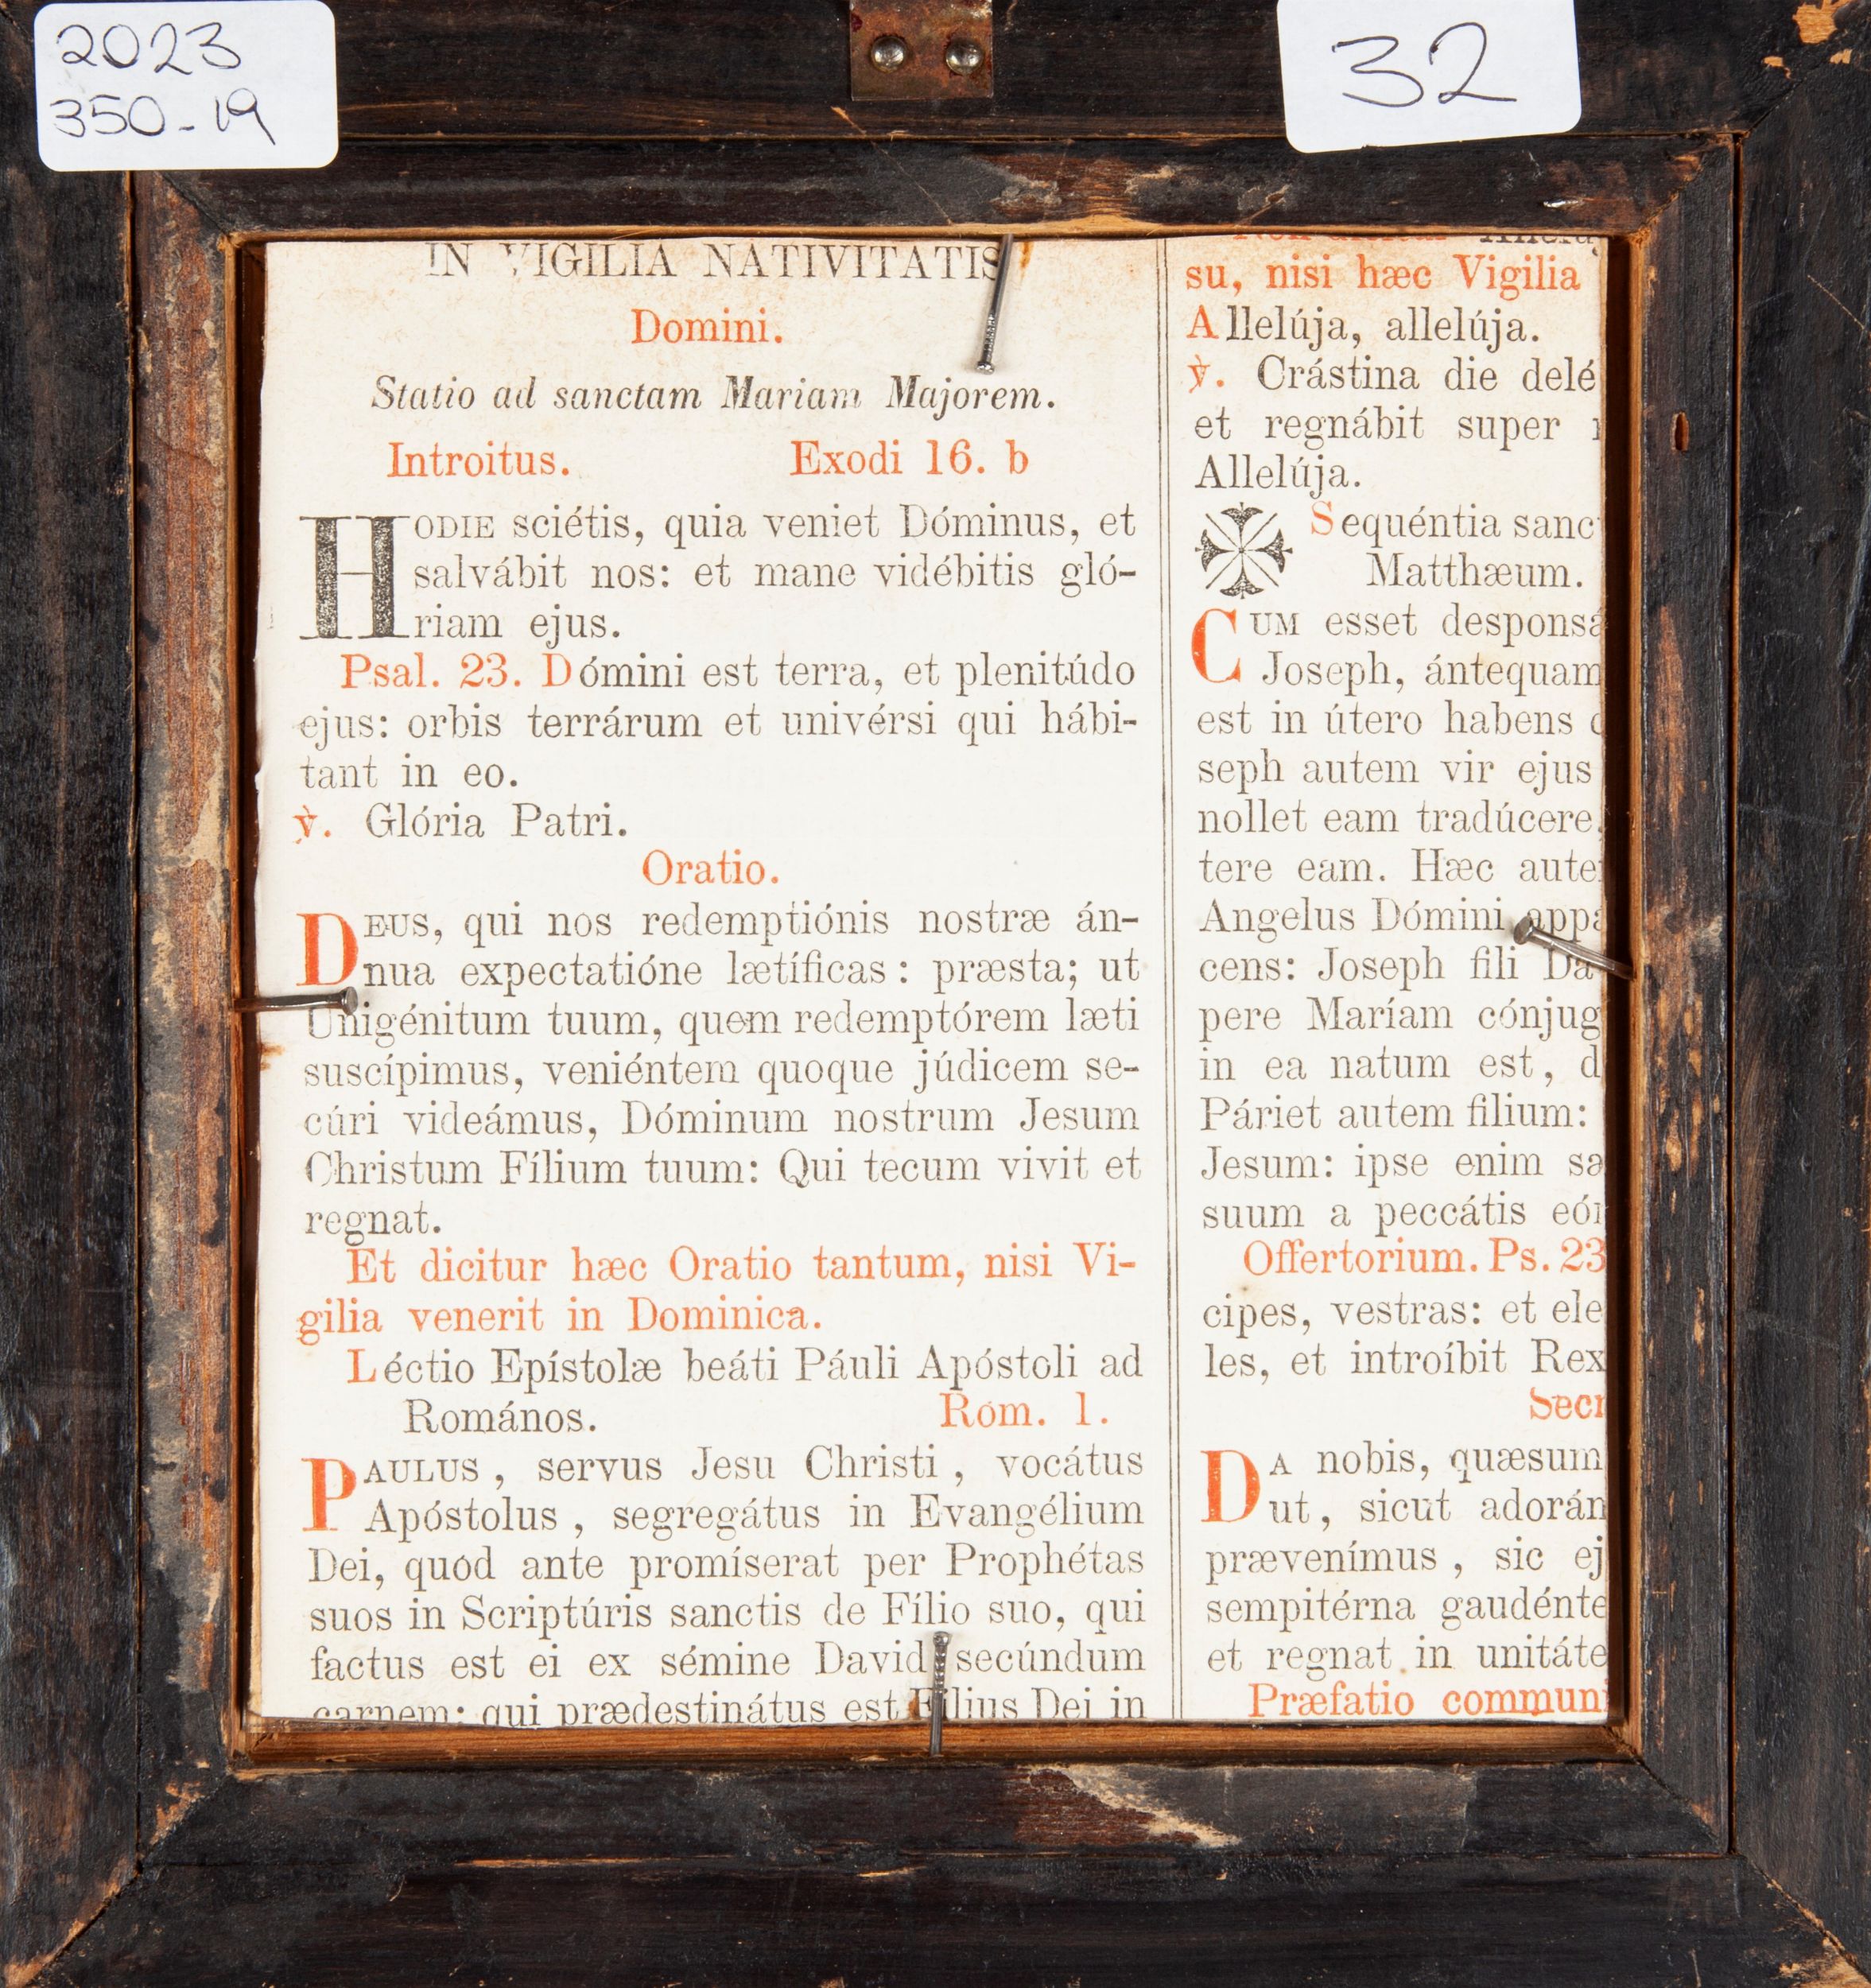 2023
350-19
32
IN VIGILIA NATIVITATIS
Domini.
Statio ad sanctam Mariam Majorem.
Introitus. Exodi 16. b
HODIE sciétis, quia veniet Dóminus, et
salvábit nos: et mane vidébitis gló-
riam ejus.
Psal. 23. Dómini est terra, et plenitúdo
ejus: orbis terrárum et univérsi qui hábi-
tant in eo.
℣. Glória Patri.
Oratio.
DEUS, qui nos redemptiónis nostræ án-
nua expectatióne lætíficas: præsta; ut
Unigénitum tuum, quem redemptórem læti
suscípimus, veniéntem quoque júdicem se-
cúri videámus, Dóminum nostrum Jesum
Christum Fílium tuum: Qui tecum vivit et
regnat.
Et dicitur hæc Oratio tantum, nisi Vi-
gilia venerit in Dominica.
Léctio Epístolæ beáti Páuli Apóstoli ad
Romános. Rom. 1.
PAULUS, servus Jesu Christi, vocátus
Apóstolus, segregátus in Evangélium
Dei, quod ante promíserat per Prophétas
suos in Scriptúris sanctis de Fílio suo, qui
factus est ei ex sémine David secúndum
carnem: qui prædestinátus est Fílius Dei in
su, nisi hæc Vigilia
Allelúja, allelúja.
℣. Crástina die delé
et regnábit super
Allelúja.
Sequéntia sanc
Matthæum.
CUM esset desponsá
Joseph, ántequam
est in útero habens
seph autem vir ejus
nollet eam tradúcere
tere eam. Hæc aute
Angelus Dómini appa
cens: Joseph fili Da
pere Maríam cónjug
in ea natum est, d
Páriet autem filium:
Jesum: ipse enim sa
suum a peccátis eó
Offertorium. Ps. 23
cipes, vestras: et ele
les, et introíbit Rex
Secr
DA nobis, quæsum
ut, sicut adorán
prævenímus, sic ej
sempitérna gaudénte
et regnat in unitáte
Præfatio communi